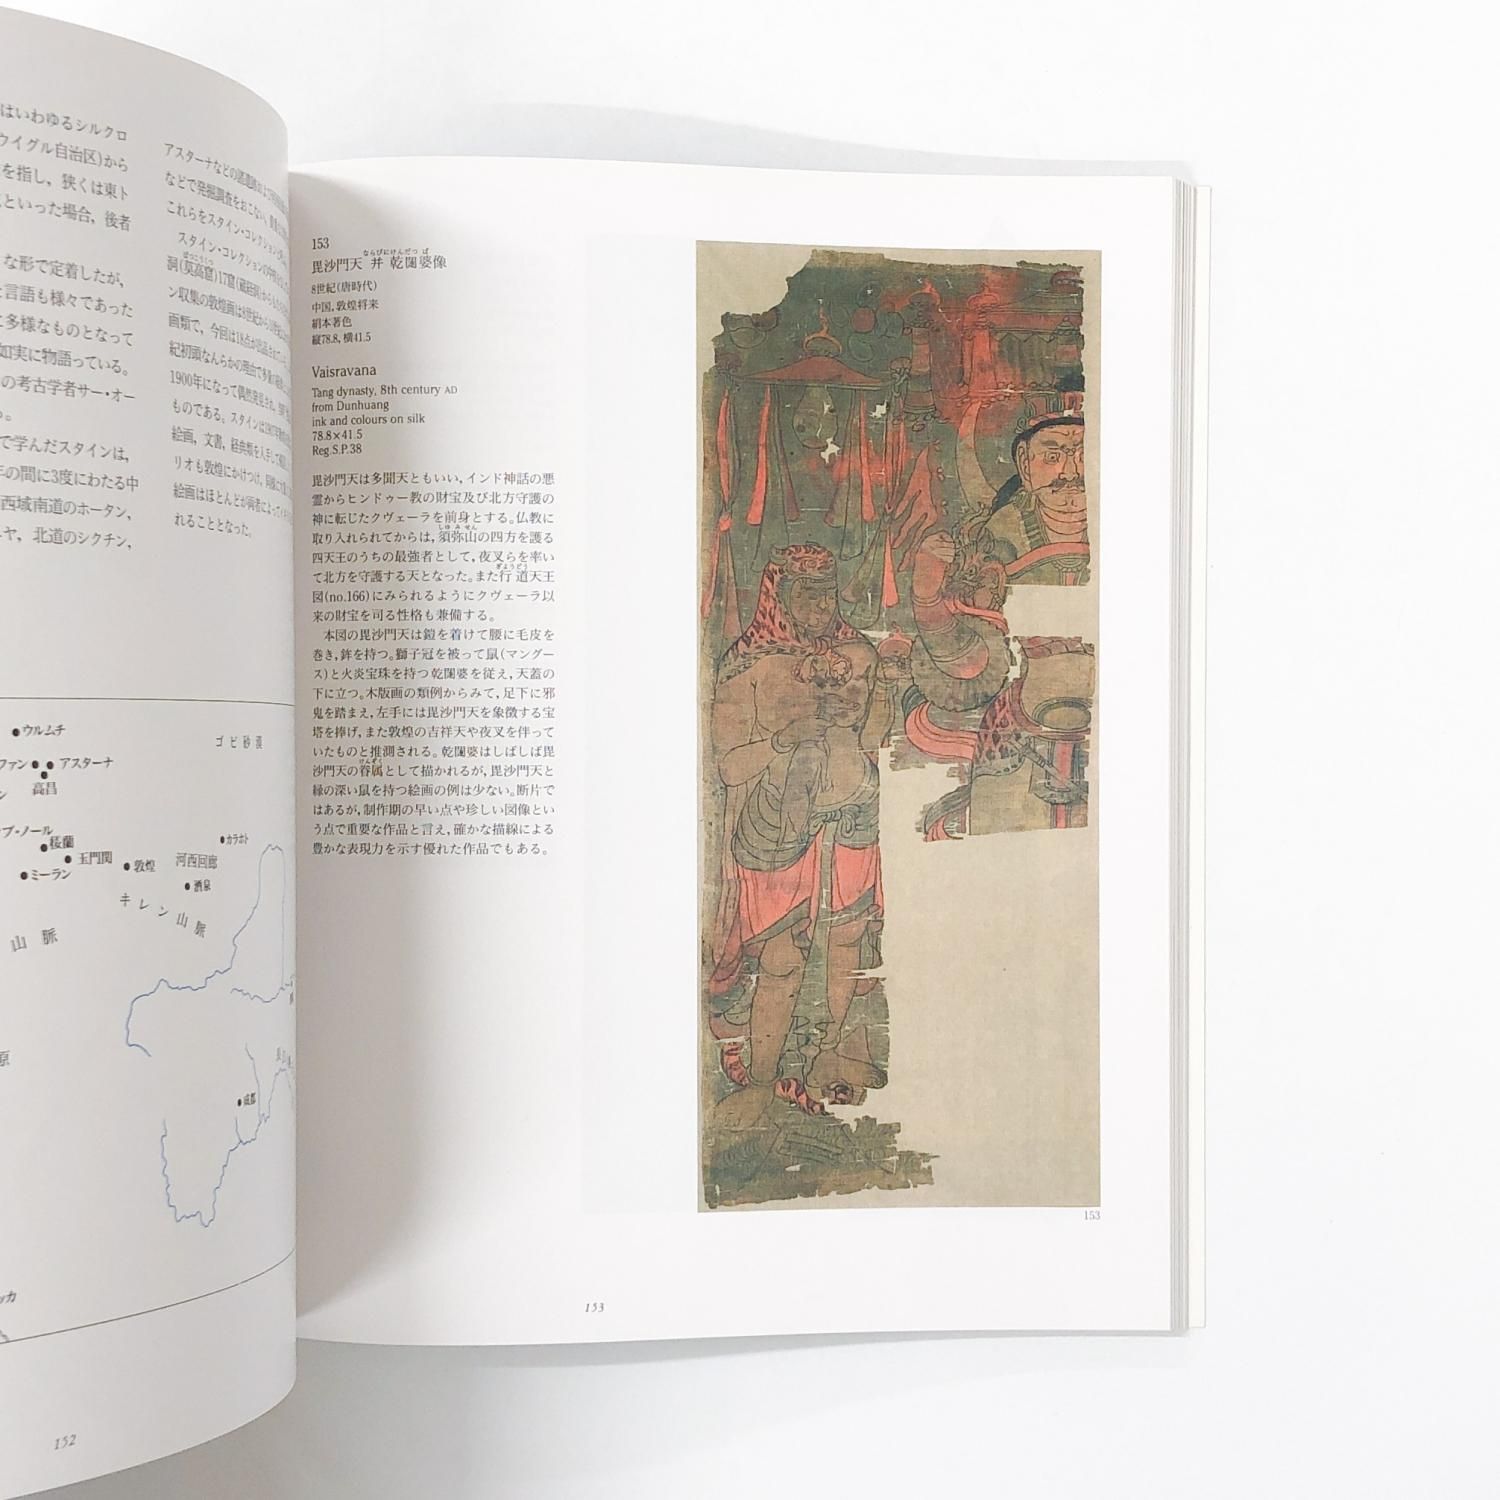 はいわゆるシルクロ
ウイグル自治区)から
を指し，狭くは東ト
といった場合，後者
な形で定着したが，
言語も様々であった
に多様なものとなって
如実に物語っている。
の考古学者サー・オー
で学んだスタインは，
年の間に3度にわたる中
西域南道のホータン，
ヤ，北道のシクチン，
アスターナなどの
などで発掘調査をおこない，
これらをスタイン・コレクション
スタイン・コレクションの
洞(莫高窟)17窟(蔵経洞)から
ン収集の敦煌画は8世紀から
画類で，今回は18点が出品されて
紀初頭なんらかの理由で
1900年になって偶然発見され，
ものである。スタインは1907年
絵画，文書，経典類を入手して
リオも敦煌にかけつけ，同様に
絵画はほとんどが両者によって
れることとなった。
ウルムチ
ゴビ砂漠
ファン
アスターナ
高昌
プ・ノール
桜蘭
カラホト
玉門関
敦煌
河西回廊
ミーラン
酒泉
キレン山脈
山脈
原
成都
ッカ
152
153
ならびにけんだつば
毘沙門天 并 乾闥婆像
8世紀(唐時代)
中国，敦煌将来
絹本著色
縦78.8，横41.5
Vaisravana
Tang dynasty, 8th century AD
from Dunhuang
ink and colours on silk
78.8×41.5
Reg.S.P.38
毘沙門天は多聞天ともいい，インド神話の悪
霊からヒンドゥー教の財宝及び北方守護の
神に転じたクヴェーラを前身とする。仏教に
取り入れられてからは，須弥山の四方を護る
四天王のうちの最強者として，夜叉らを率い
て北方を守護する天となった。また行道天王
図(no.166)にみられるようにクヴェーラ以
来の財宝を司る性格も兼備する。
本図の毘沙門天は鎧を着けて腰に毛皮を
巻き，鉾を持つ。獅子冠を被って鼠(マングー
ス)と火炎宝珠を持つ乾闥婆を従え，天蓋の
下に立つ。木版画の類例からみて，足下に邪
鬼を踏まえ，左手には毘沙門天を象徴する宝
塔を捧げ，また敦煌の吉祥天や夜叉を伴って
いたものと推測される。乾闥婆はしばしば毘
沙門天の眷属として描かれるが，毘沙門天と
縁の深い鼠を持つ絵画の例は少ない。断片で
はあるが，制作期の早い点や珍しい図像とい
う点で重要な作品と言え，確かな描線による
豊かな表現力を示す優れた作品でもある。
153
153